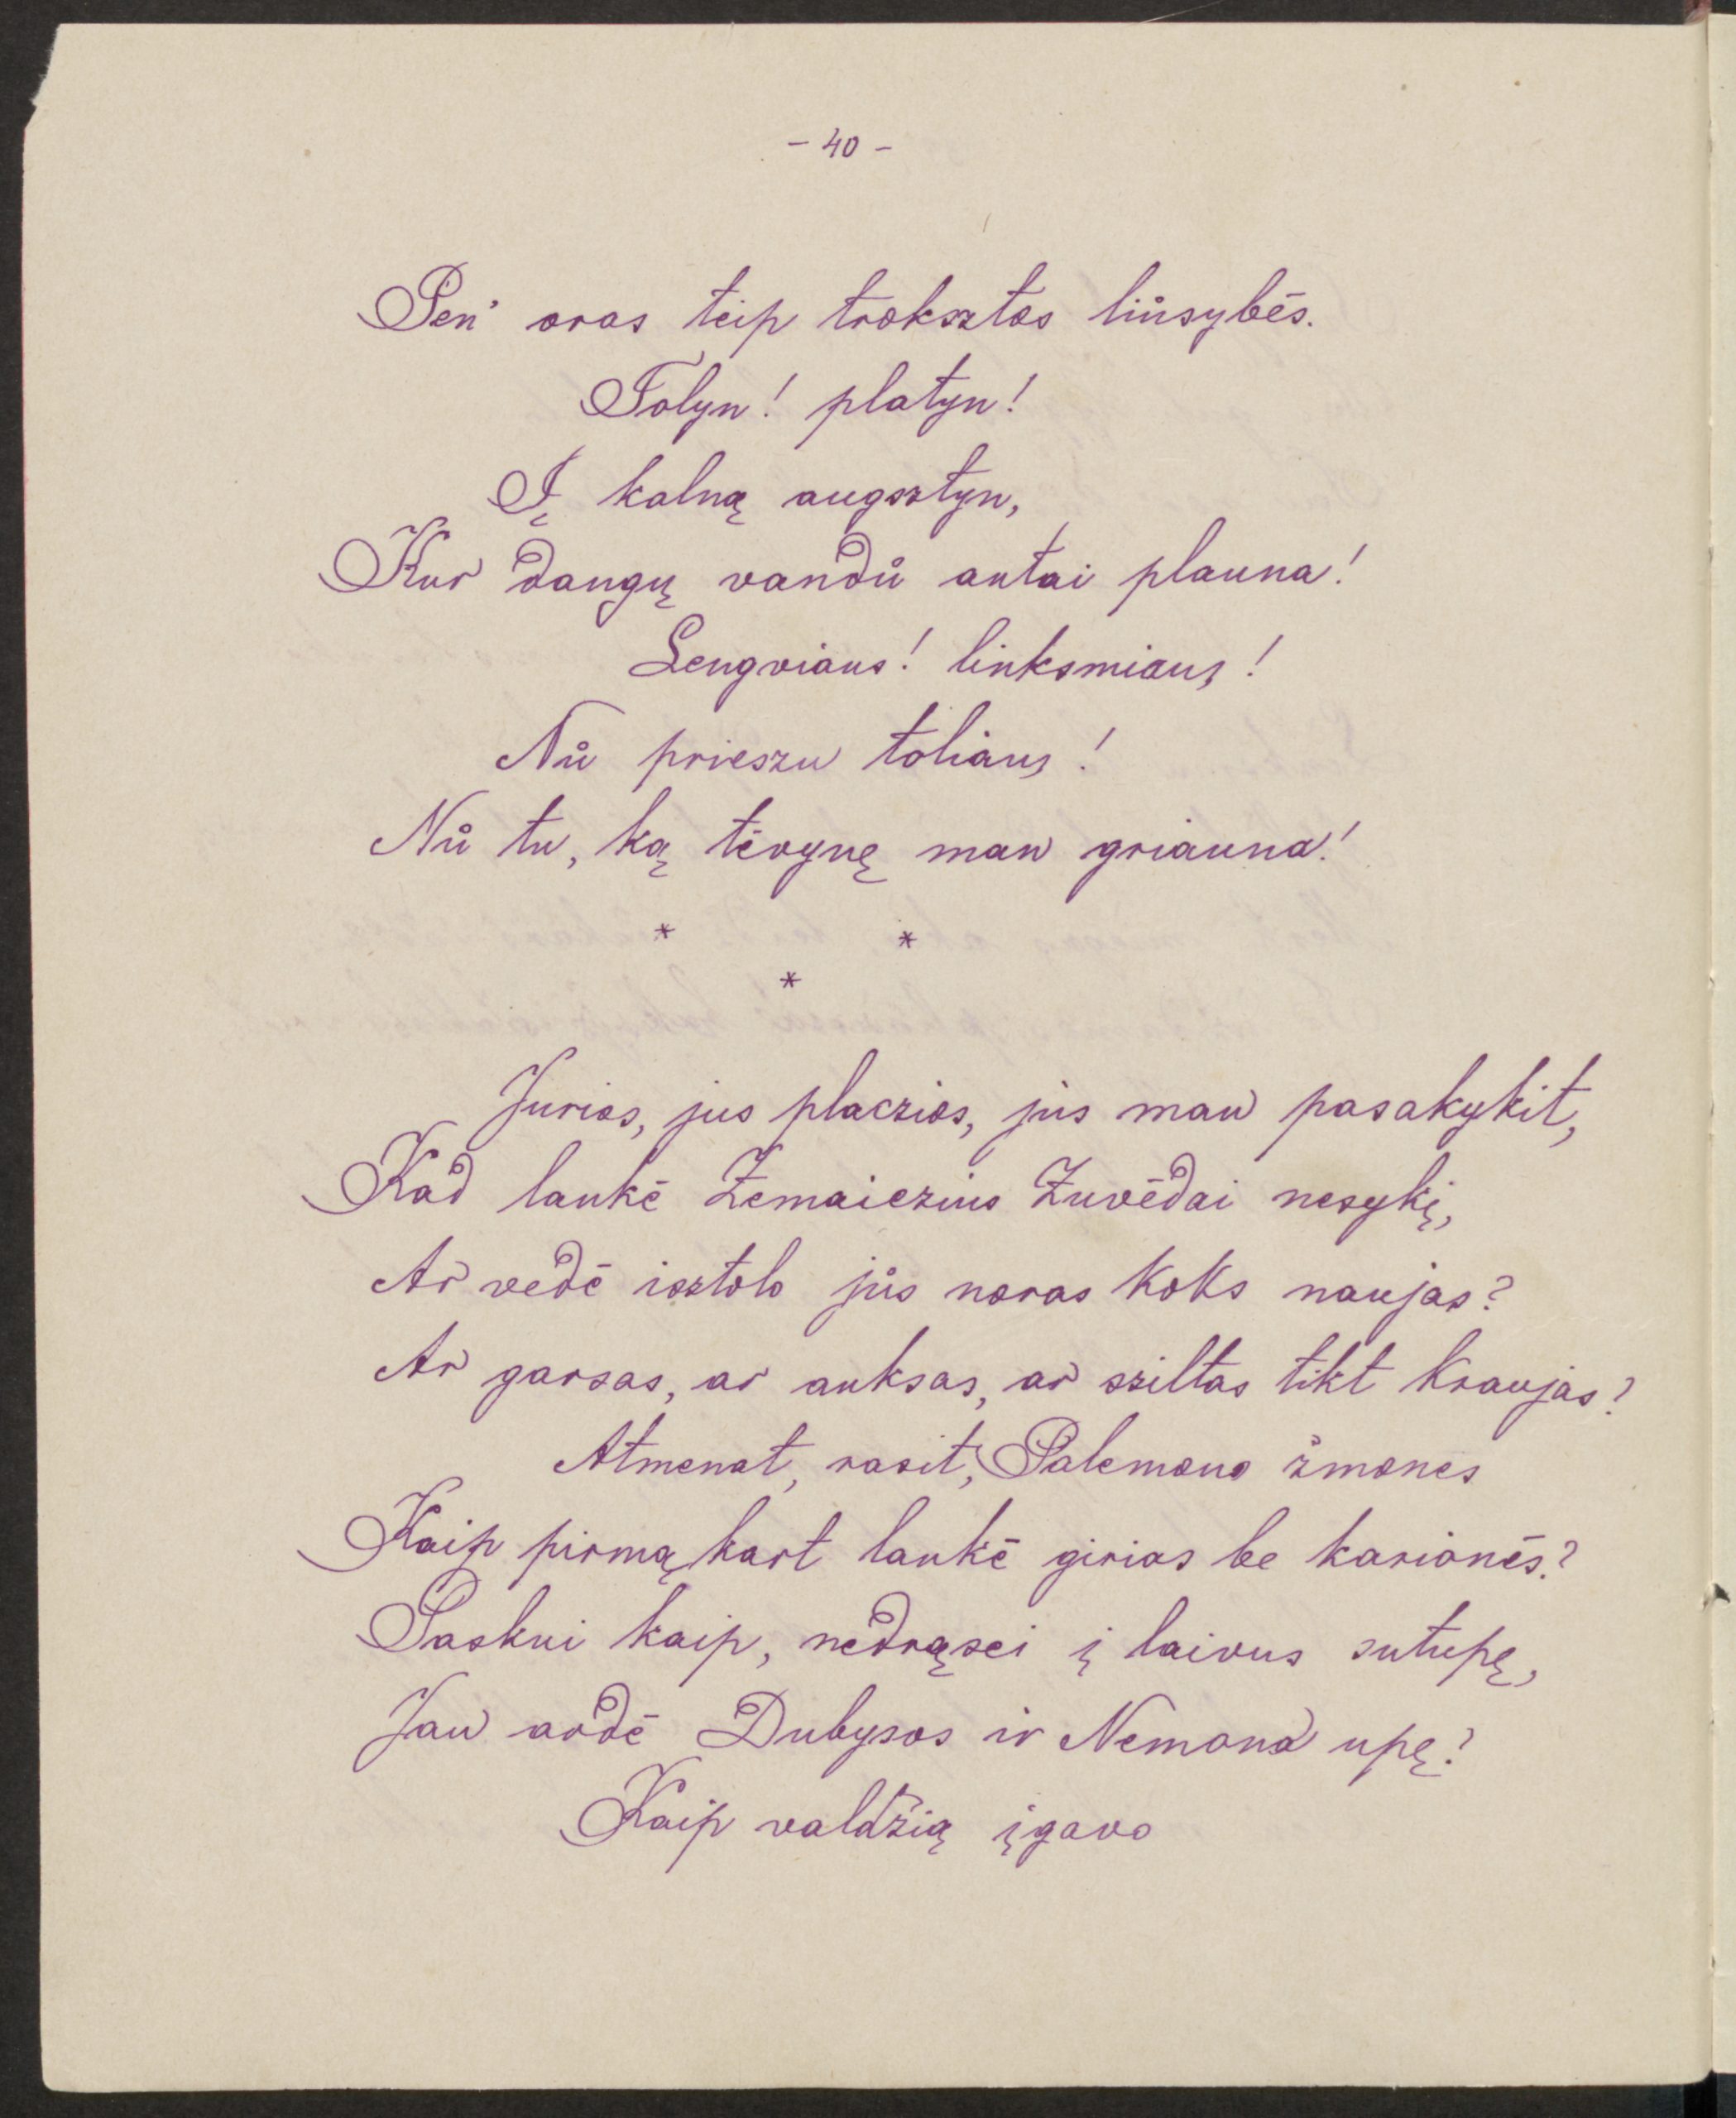 - 40 -
Pen' oras teip troksztas liůsybės.
Tolyn! platyn!
Į kalną augsztyn,
Kur dangų vandů antai plauna!
Lengviaus! linksmiaus!
Nů prieszu toliaus!
Nů tu, ką tėvynę man griauna!
* *
*
Jurios, jus placzios, jus man pasakykit,
Kad laukė Žemaiczius Žuvėdai nesykį,
Ar vedė isztolo jůs noras koks naujas?
Ar garsas, ar auksas, ar sziltas tikt kraujas?
Atmenat, rasit, Palemono žmones
Kaip pirmą kart lankė girias be karionės?
Paskui kaip, nedrąsei į laivus sutupę,
Jau ardė Dubysos ir Nemona upę?
Kaip valdžią įgavo